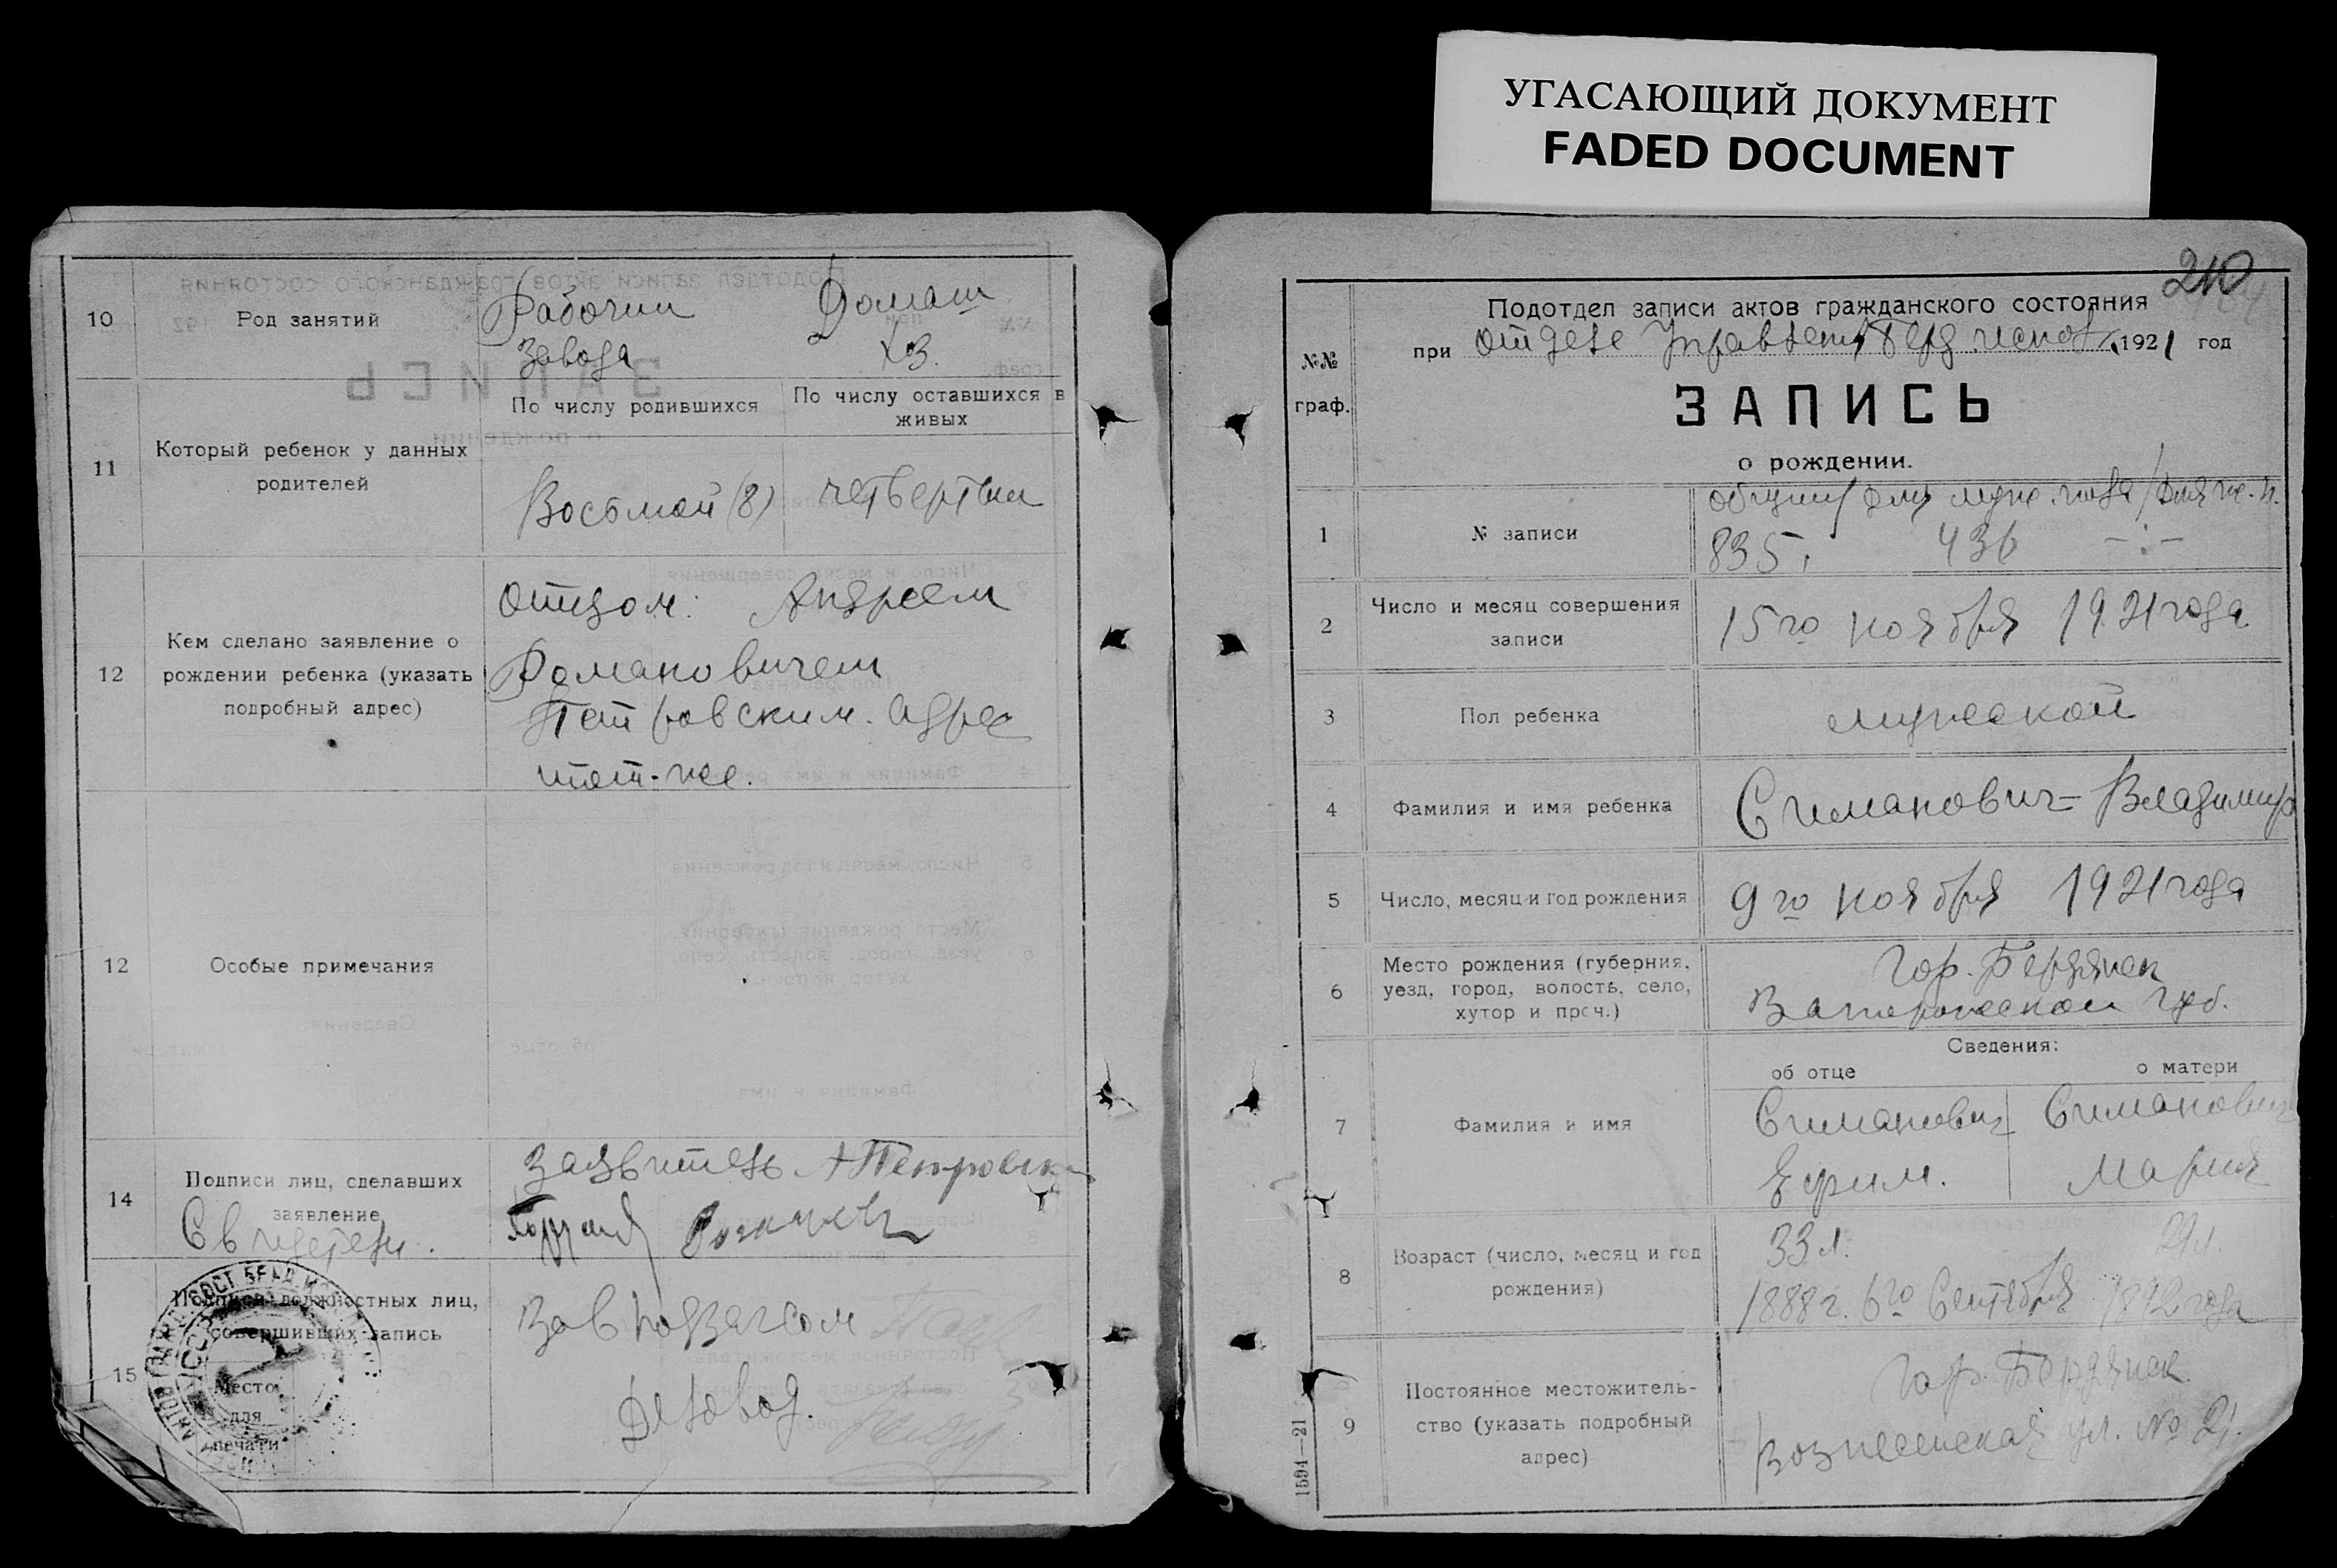 УГАСАЮЩИЙ ДОКУМЕНТ
FADED DOCUMENT
10
Род занятий
Рабочий
завода
Домаш
хоз.
11
Который ребенок у данных
родителей
По числу родившихся
По числу оставшихся в
живых
Восьмой (8)
четвертый
12
Кем сделано заявление о
рождении ребенка (указать
подробный адрес)
Отцом: Андреем
Романовичем
Петровским. Адрес
тот-же.
12
Особые примечания
14
Подписи лиц, сделавших
заявление
Свидетели.
Заявитель А Петровски
15
Подписи должностных лиц,
совершивших запись
Место
для
печати
Зав подзагсом
Деловод.
210
№№
граф.
Подотдел записи актов гражданского состояния
при Отделе Управления Берд исполк. 1921 год
ЗАПИСЬ
о рождении.
1
№ записи
общий/для муж. пола/для же. п.
835. 436 -:-
2
Число и месяц совершения
записи
15го ноября 1921 года
3
Пол ребенка
мужской
4
Фамилия и имя ребенка
Симанович- Владимир
5
Число, месяц и год рождения
9го ноября 1921 года
6
Место рождения (губерния,
уезд, город, волость, село,
хутор и проч.)
Гор. Бердянск
Запорожской губ.
Сведения:
об отце
о матери
7
Фамилия и имя
Симанович
Ефим.
Симанович
Мария
8
Возраст (число, месяц и год
рождения)
33 л.
29 л.
1888 г. 6го Сентября
1892 года
9
Постоянное местожитель-
ство (указать подробный
адрес)
Гор. Бердянск
Вознесенская ул. № 21.
1594—21